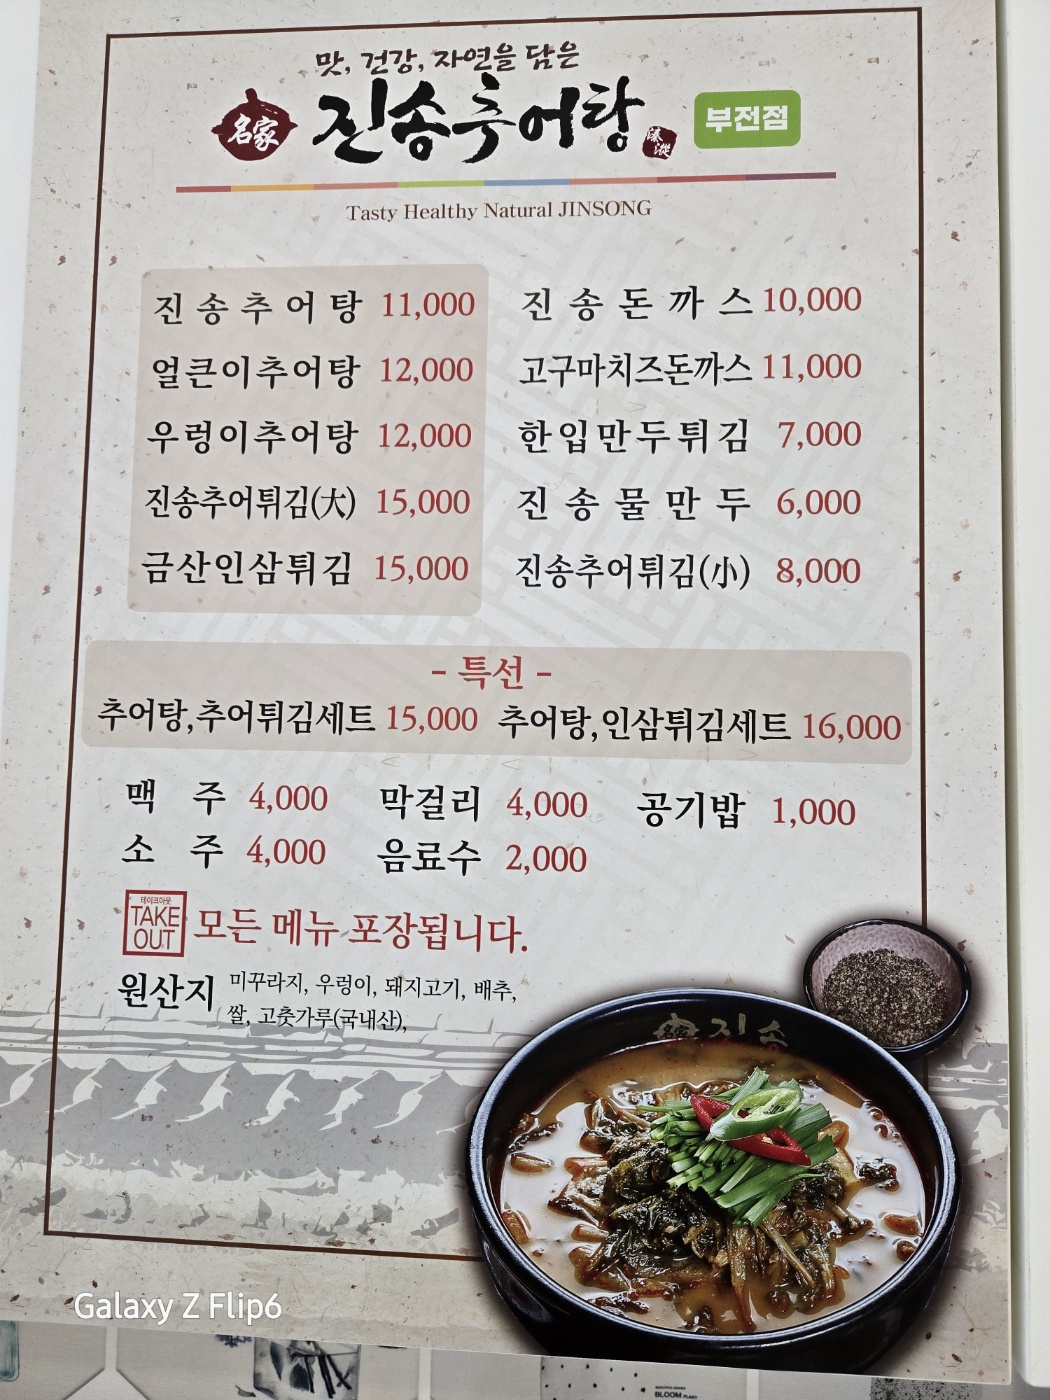 맛, 건강, 자연을 담은
名家 진송추어탕 부전점
Tasty Healthy Natural JINSONG
진송추어탕 11,000 진송돈까스 10,000
얼큰이추어탕 12,000 고구마치즈돈까스 11,000
우렁이추어탕 12,000 한입만두튀김 7,000
진송추어튀김(大) 15,000 진송물만두 6,000
금산인삼튀김 15,000 진송추어튀김(小) 8,000
- 특선 -
추어탕,추어튀김세트 15,000 추어탕,인삼튀김세트 16,000
맥주 4,000 막걸리 4,000 공기밥 1,000
소주 4,000 음료수 2,000
테이크아웃
TAKE
OUT
모든 메뉴 포장됩니다.
원산지 미꾸라지, 우렁이, 돼지고기, 배추,
쌀, 고춧가루(국내산),
名家 진송
Galaxy Z Flip6
BLOOM